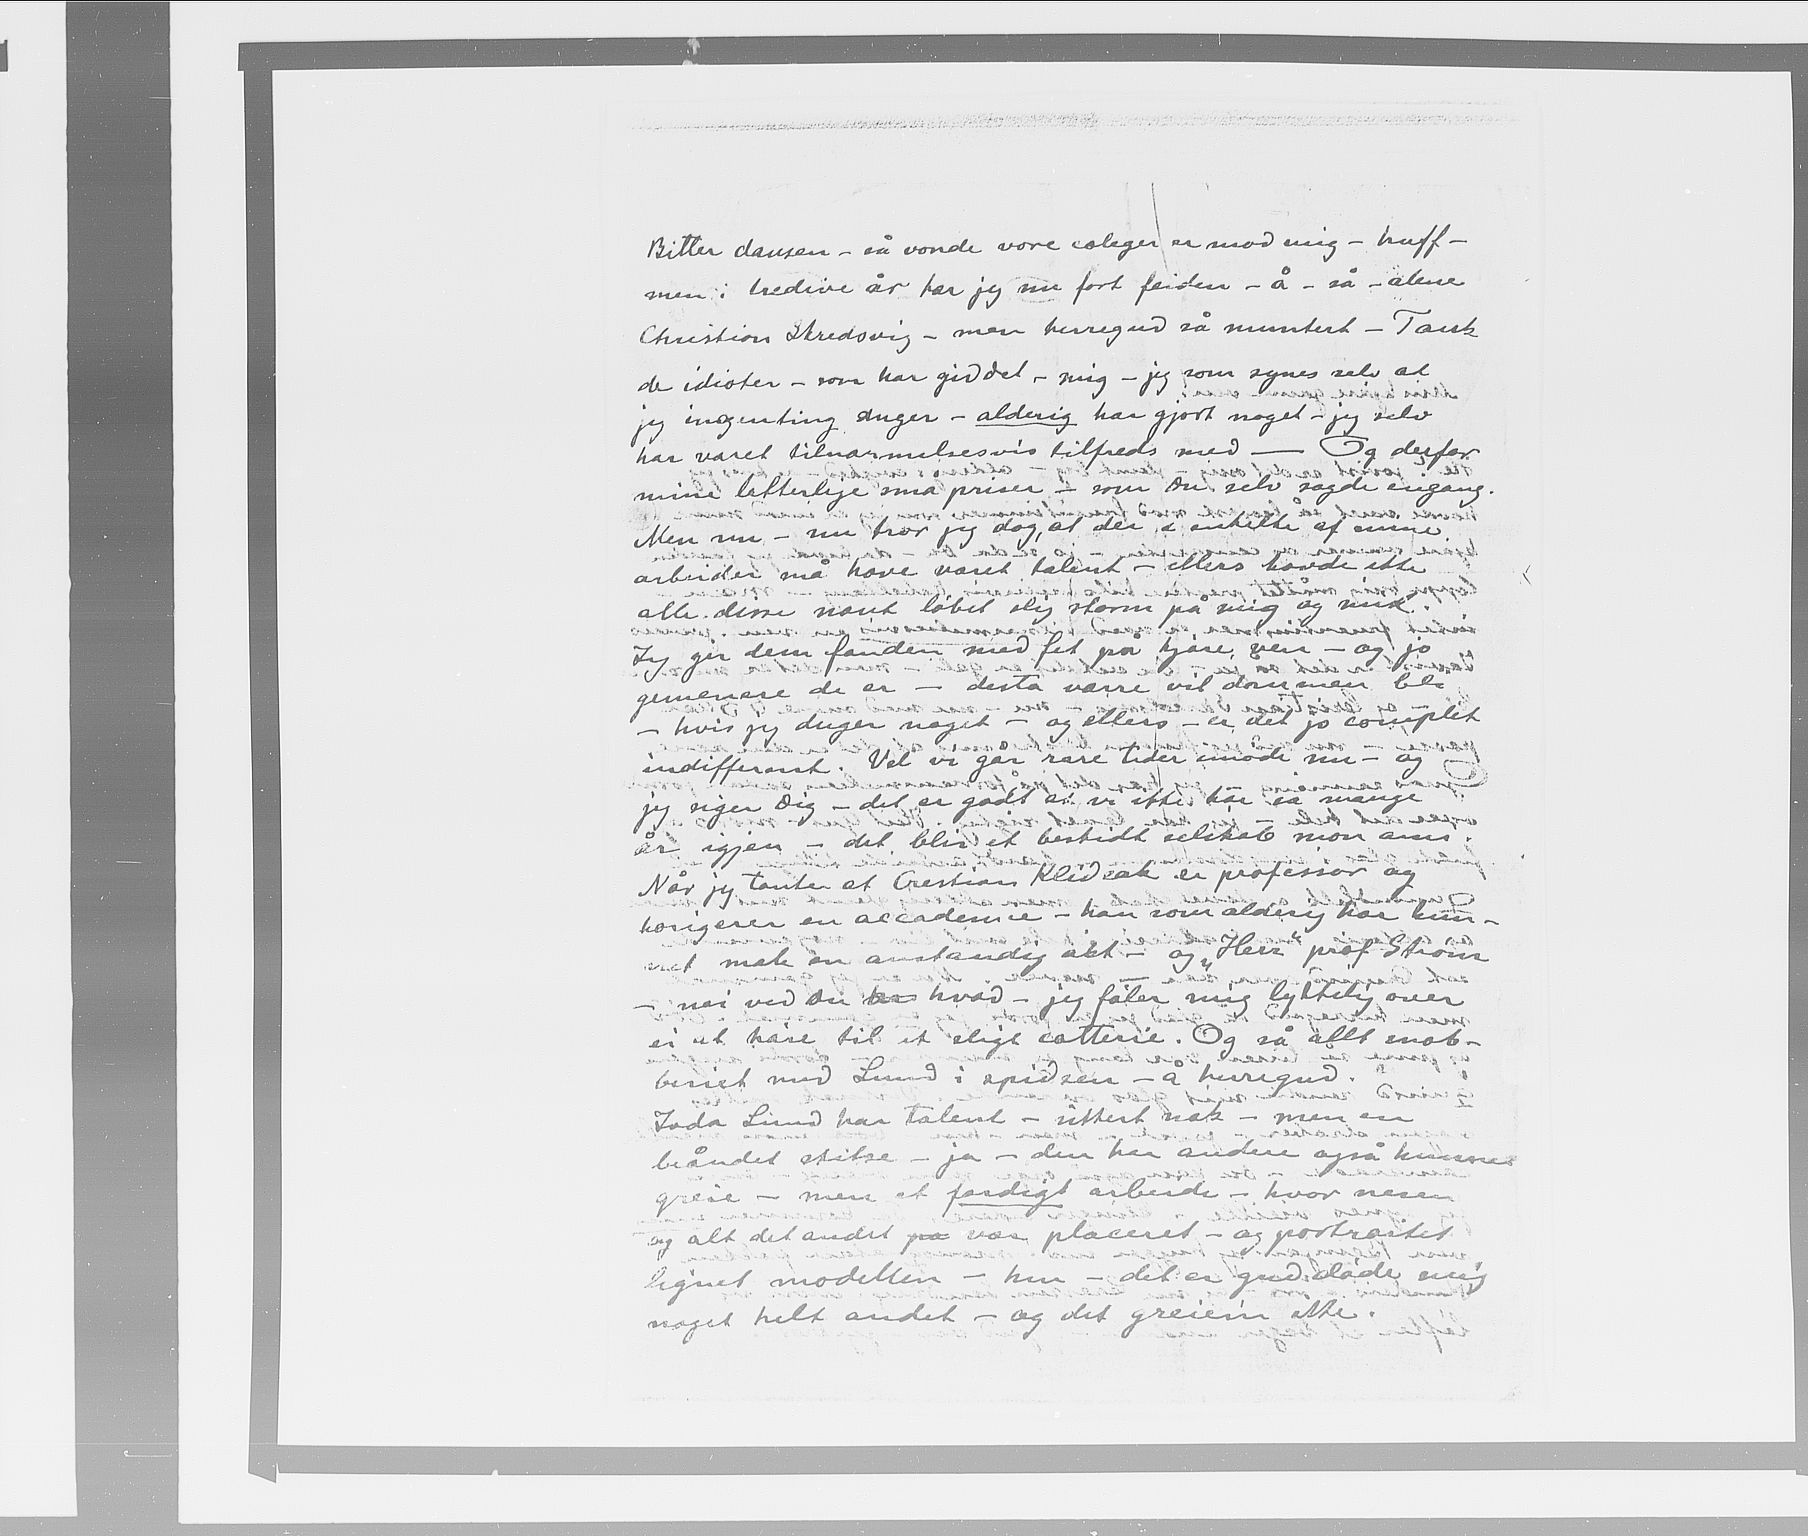 Bitter dansen – så vonde vore coleger er mod mig – huff –
men i tredive år har jeg nu ført feiden – å – så – alene
Christian Skredsvig – men herregud så muntert – Tænk
de idioter – som har giddet – mig – jeg som synes selv at
jeg ingenting duger – alderig har gjort noget – jeg selv
har været tilnærmelsesvis tilfreds med — Og derfor
mine letterlige små priser – som Du selv sagde engang.
Men nu – nu tror jeg dog, at der i enkelte af mine
arbeider må have været talent – ellers havde ikke
alle disse næret løbet slig storm på mig og mit.
Jeg gir dem fanden med fet på kjære ven – og jo
gemenere de er – desta værre vil dommen bli
– hvis jeg duger noget – og ellers – er det jo complet
indifferant. Vel vi går rare tider imøde nu – og
jeg siger Dig – det er godt at vi ikke har så mange
år igjen – det blir et beskidt selskab mon ami.
Når jeg tænker at Crestian er professor og
korigerer en accademie – han som alderig har kun-
net male en anstændig akt – og „Herr“ prof Strøm
– nei ved Du hvad – jeg føler mig lykkelig over
ei at høre til et sligt cotterie. Og så allt snob-
beriet med Lund i spidsen – å herregud.
Joda Lund har talent – sikkert nok – men en
skitse – ja – den kan andre også kunne
greie – men et færdigt arbeide – hvor nesen
og alt det andet på var placeret – og portrættet
lignet modellen – hm – det er gud døde mig
noget helt andet – og det greiein ikke.